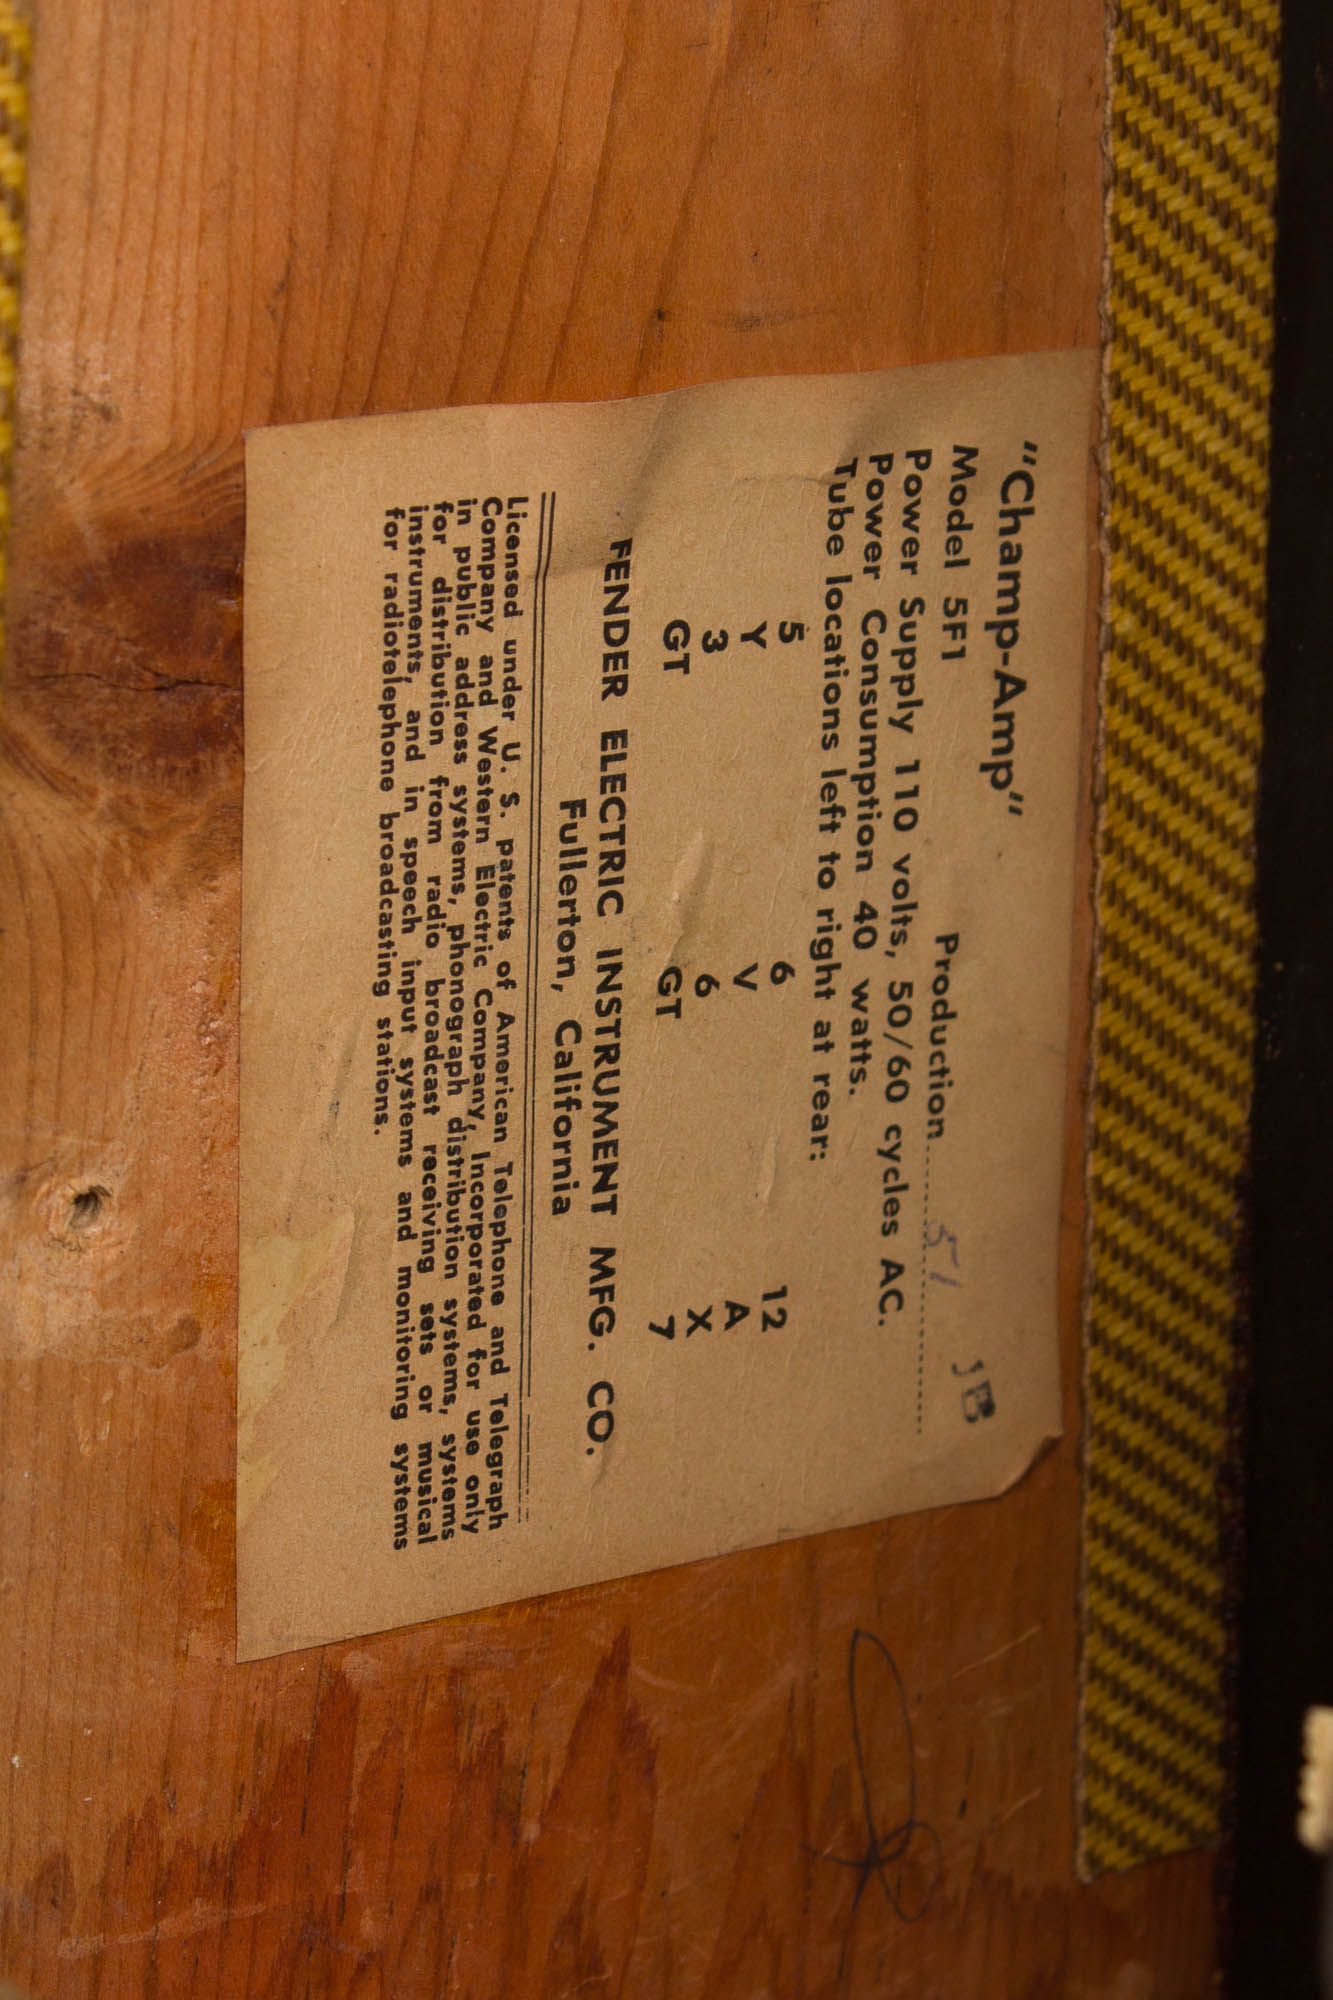 "Champ-Amp" JB
Model 5F1 Production 51
Power Supply 110 volts, 50/60 cycles AC.
Power Consumption 40 watts.
Tube locations left to right at rear:
5 6 12
Y V A
3 6 X
GT GT 7
FENDER ELECTRIC INSTRUMENT MFG. CO.
Fullerton, California
Licensed under U. S. patents of American Telephone and Telegraph
Company and Western Electric Company, Incorporated for use only
in public address systems, phonograph distribution systems, systems
for distribution from radio broadcast receiving sets or musical
instruments, and in speech input systems and monitoring systems
for radiotelephone broadcasting stations.